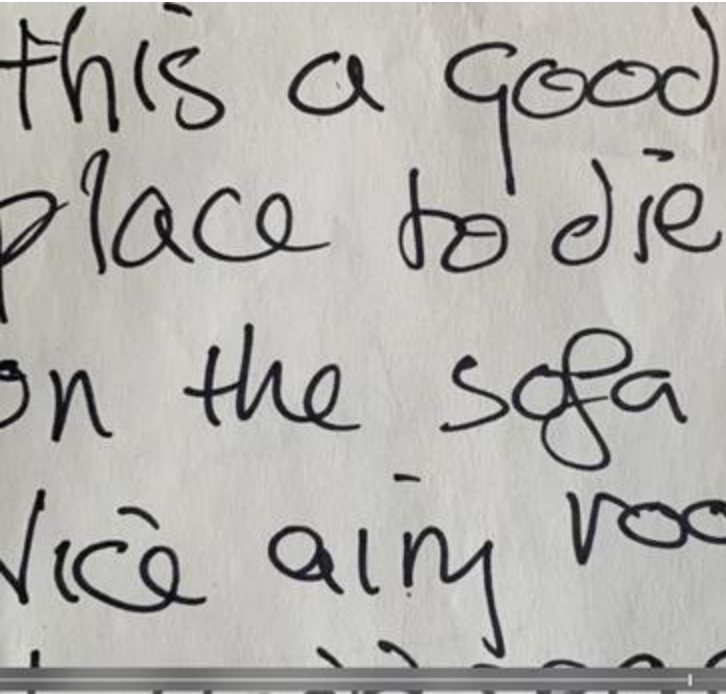 this a good
place to die
on the sofa
Nice airy roo